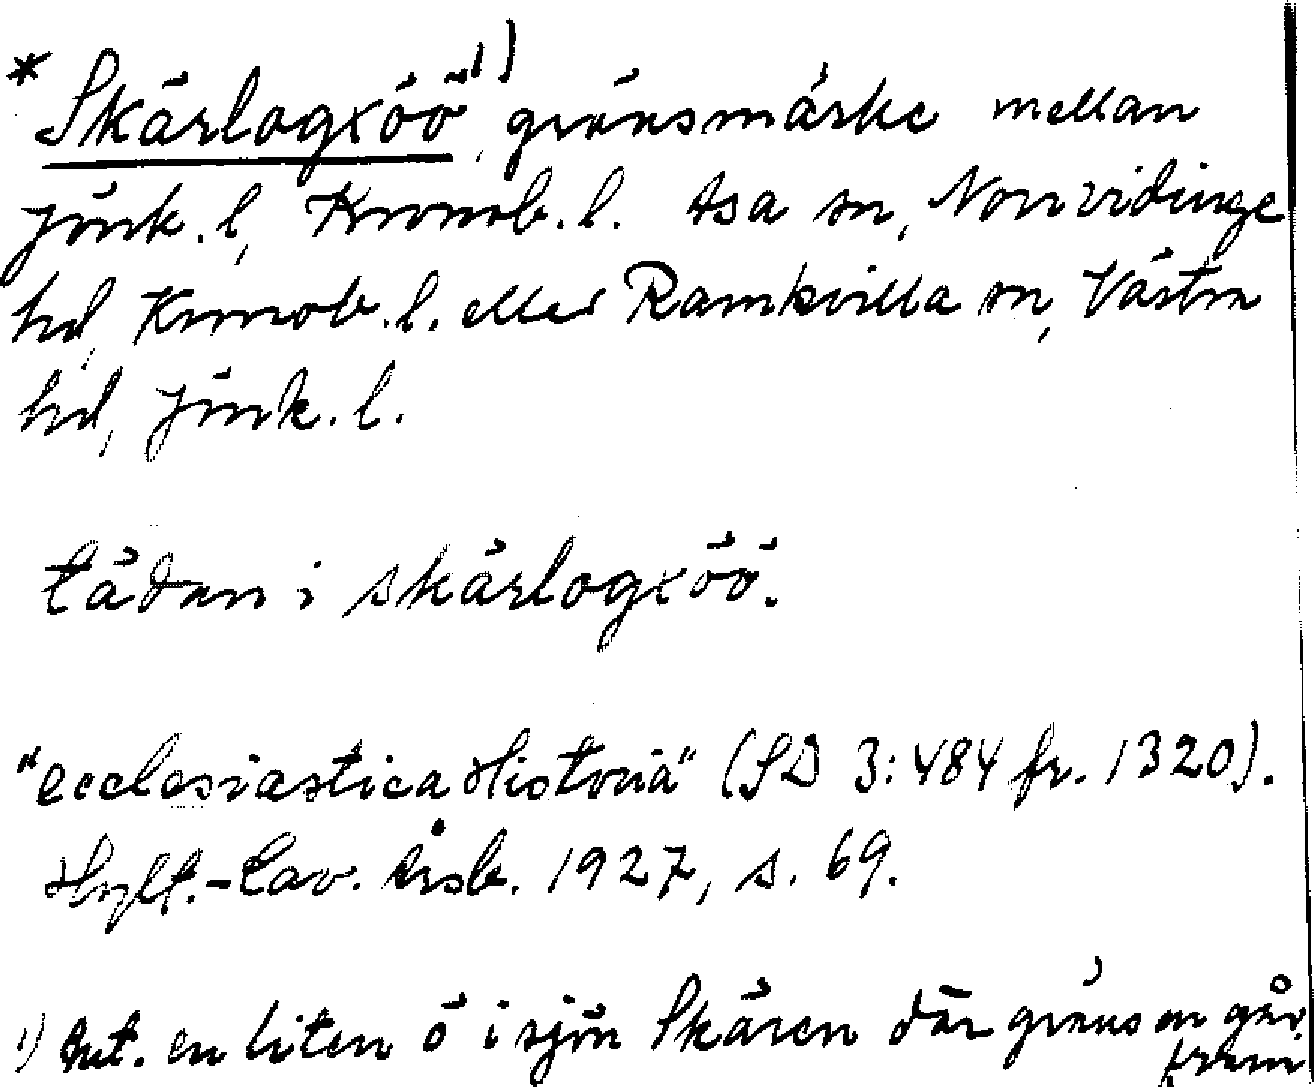 * Skärlogxöö ¹⁾, gränsmärke mellan
Jönk. l, Kronob. l. Asa sn, Norrvidinge
hd, Kronob. l. eller Ramkvilla sn, Västra
hd, Jönk. l.
tädan i skärlogxöö.
"ecclesiastica Historia" (SD 3:484 fr. 1320).
Hylt.-Cav. Årsb. 1927, s. 69.
¹⁾ Ant. en liten ö i sjön Skären där gränsen går
fram